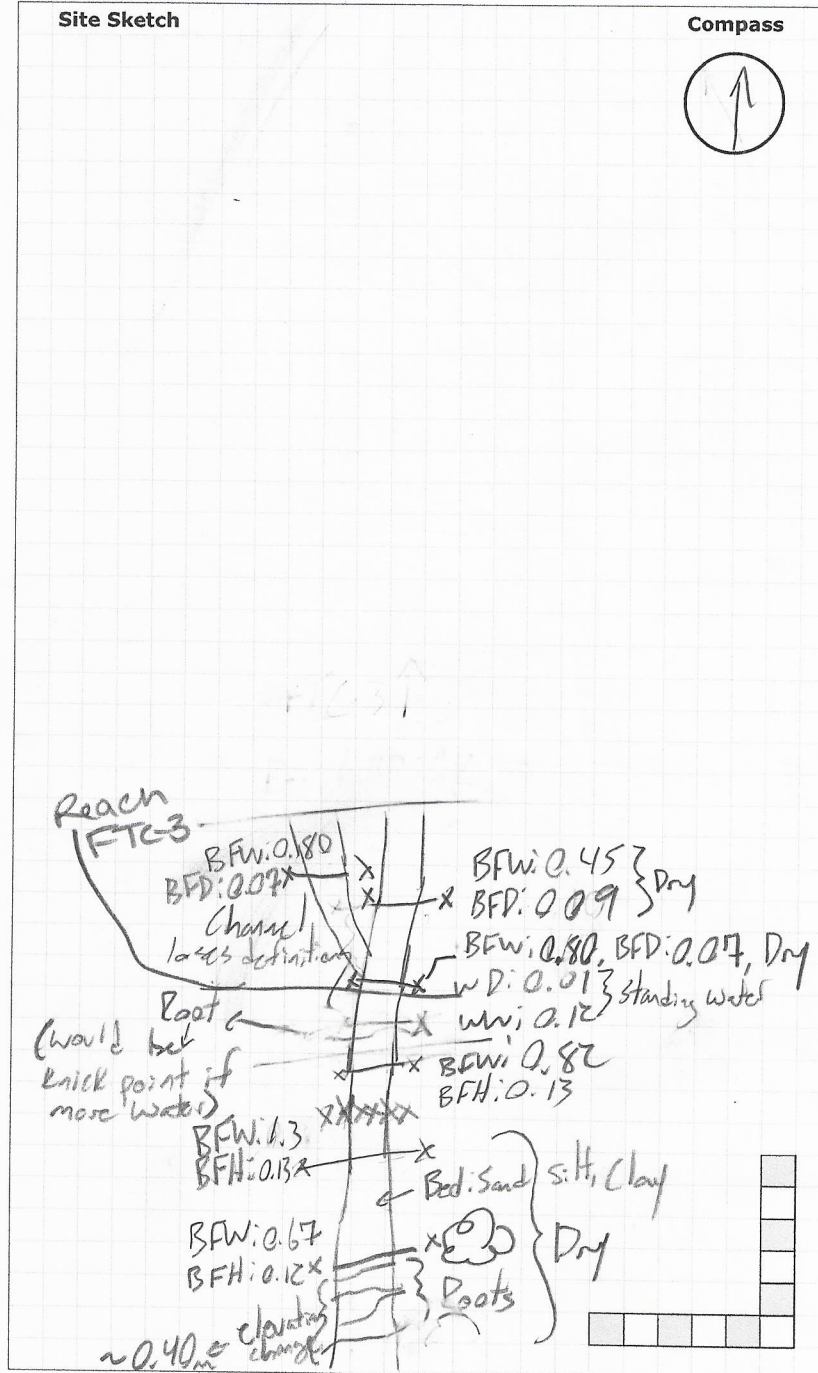 Site Sketch
Compass
FTC-3
Reach
FTC-3
BFW: 0.80
BFD: 0.07
BFW: 0.45
BFD: 0.09
Dry
Channel
loses definition
BFW: 0.80, BFD: 0.07, Dry
WD: 0.01
WW: 0.12
Standing water
Root
(would be
Knick point if
more water)
BFW: 0.82
BFH: 0.13
BFW: 1.3
BFH: 0.13
Bed: Sand silt, Clay
BFW: 0.67
BFH: 0.12
Dry
Roots
elevation
change
~0.40m